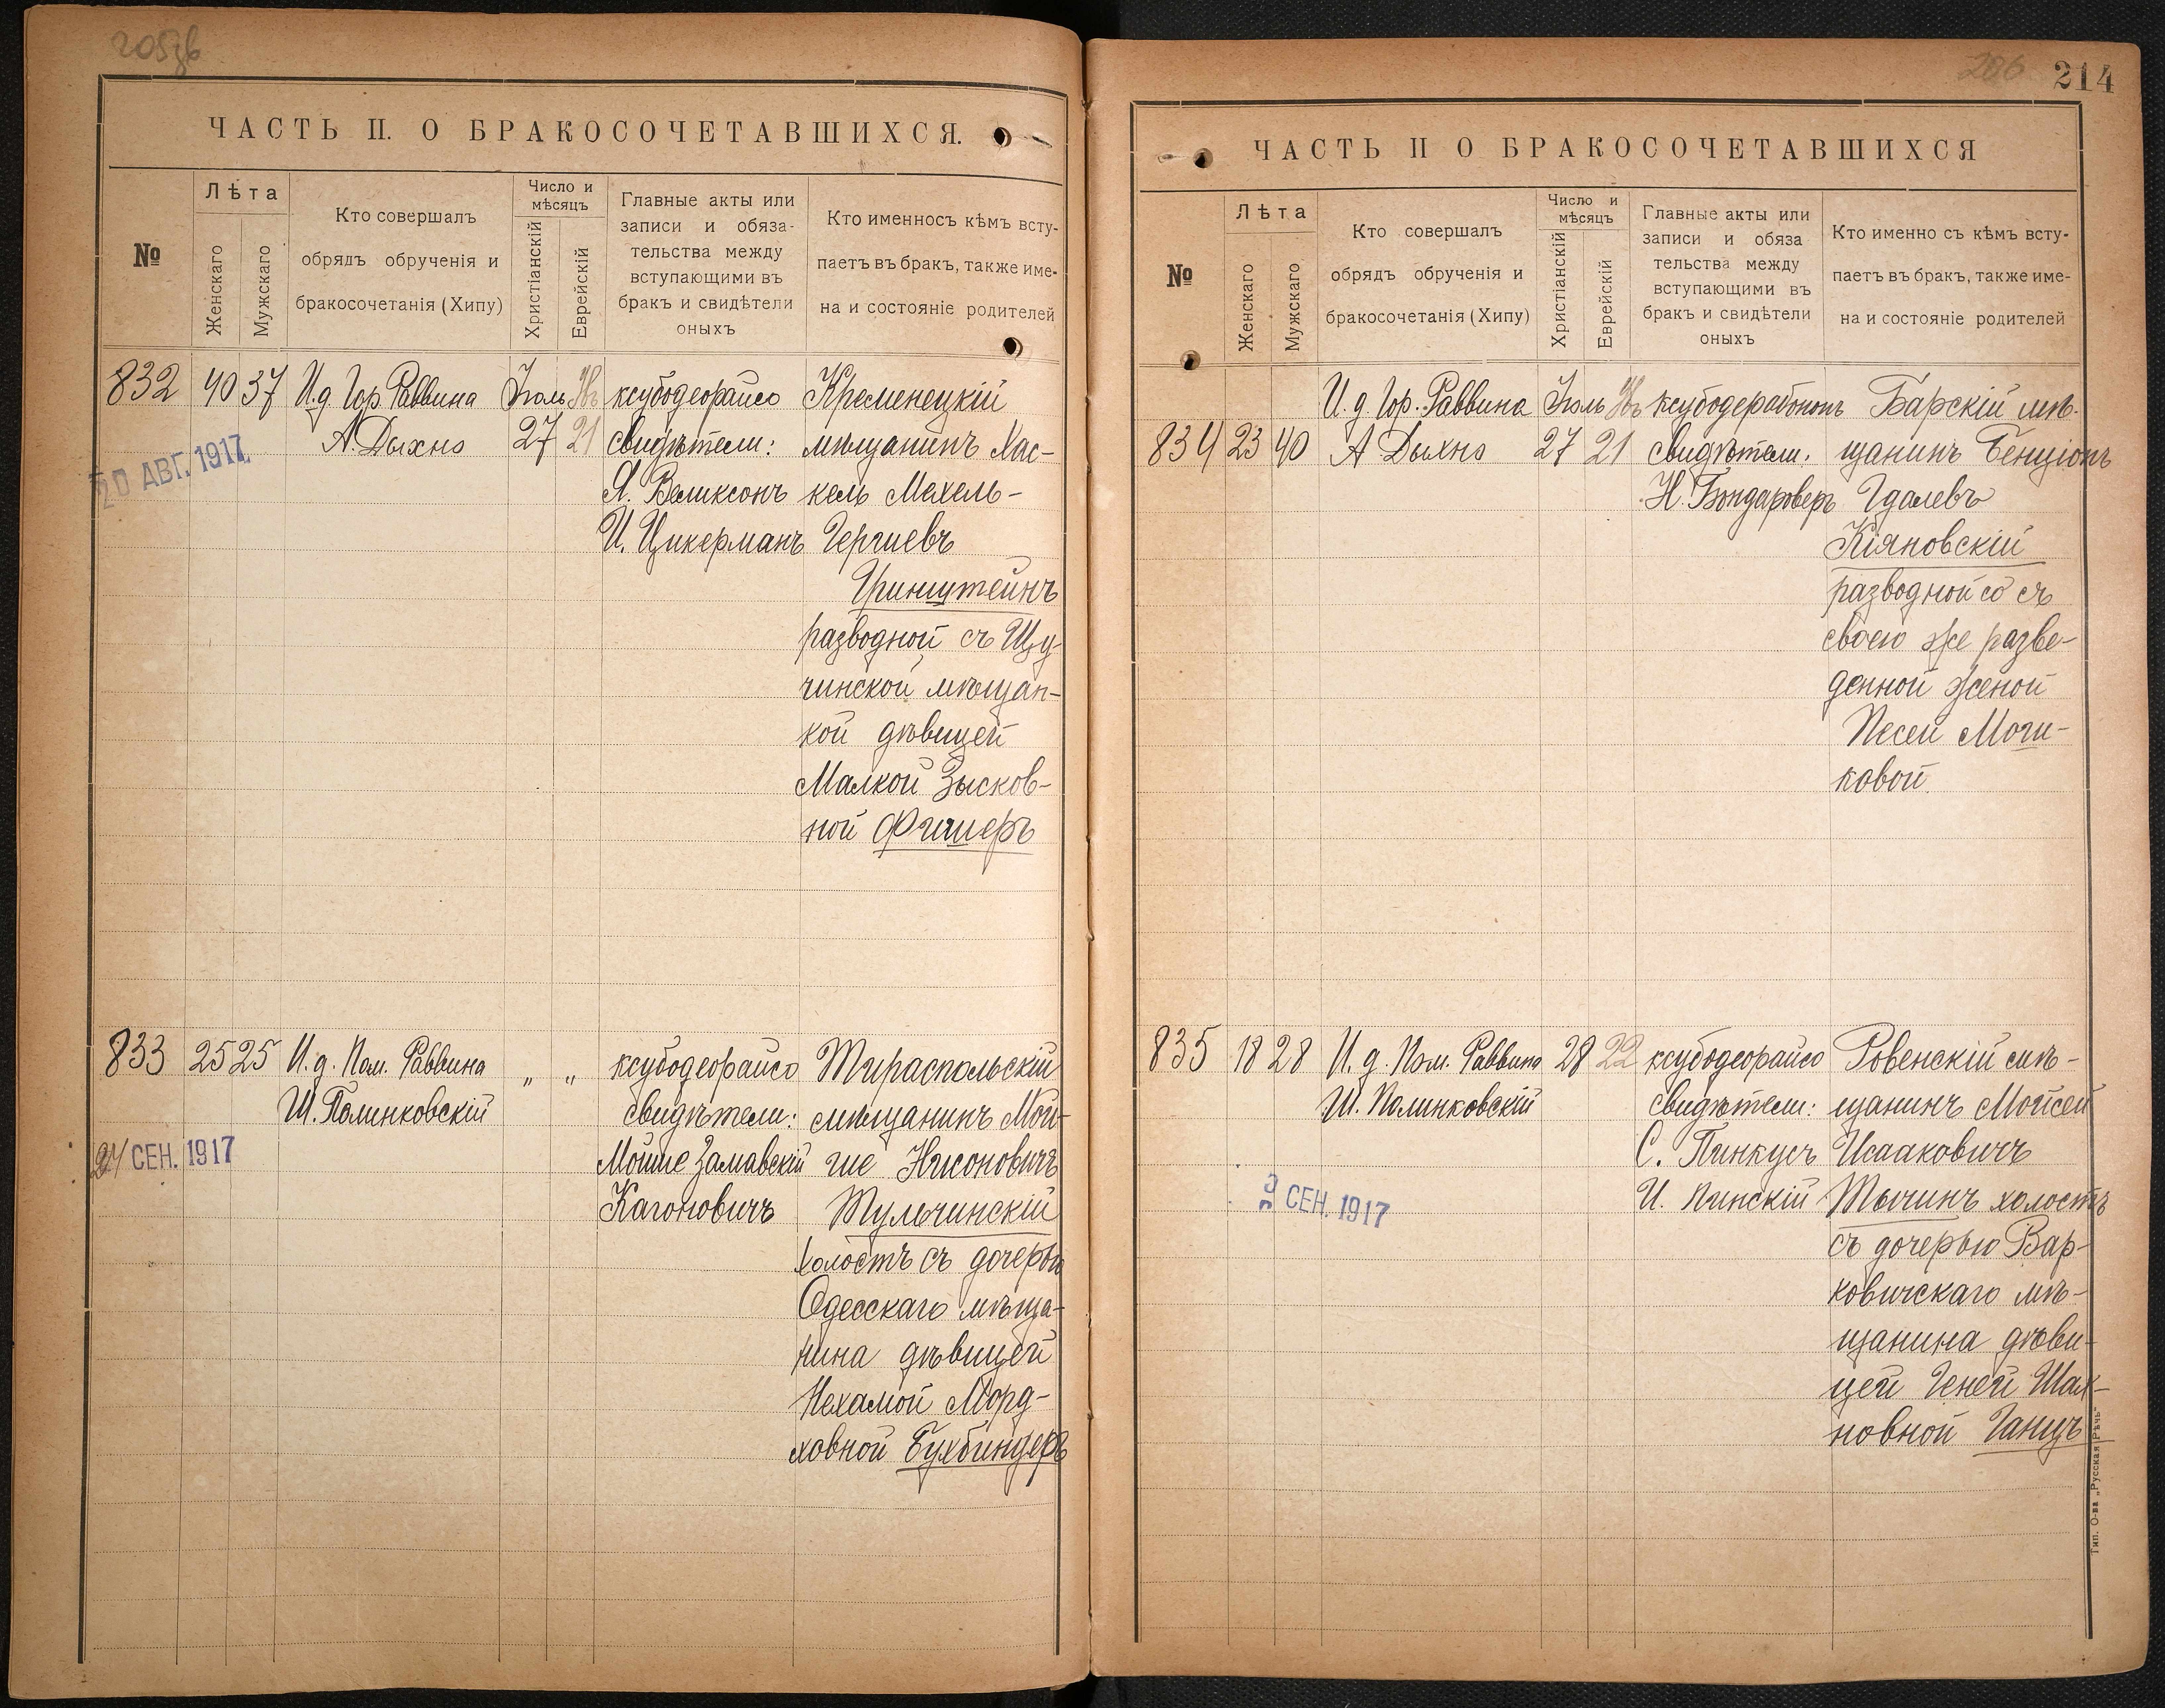 ЧАСТЬ II. О БРАКОСОЧЕТАВШИХСЯ.
№
Лѣта
Женскаго
Мужскаго
Кто совершалъ
обрядъ обрученія и
бракосочетанія (Хипу)
Число и
мѣсяцъ
Христіанскій
Еврейскій
Главные акты или
записи и обяза-
тельства между
вступающими въ
бракъ и свидѣтели
оныхъ
Кто именносъ кѣмъ всту-
паетъ въ бракъ, также име-
на и состояніе родителей
832
40
37
И.д. Гор. Раввина
А. Дыхно
Іюль
27
21
ксубодеорайсо
свидѣтели:
Я. Великсонъ
И. Цикерманъ
Кременецкій
мѣщанинъ Хас-
кель Мехель-
Гершевъ
Гринштейнъ
разводной съ Щу-
чинской мѣщан-
кой дѣвицей
Малкой Зысков-
ной Фишеръ
20 АВГ. 1917
833
25
25
И.д. Пом. Раввина
Ш. Полинковскій
„ „
ксубодеорайсо
свидѣтели:
Мойше Замавскій
Кагоновичъ
Тираспольскій
мѣщанинъ Мой-
ше Нисоновичъ
Тульчинскій
холостъ съ дочерью
Одесскаго мѣща-
нина дѣвицей
Нехамой Морд-
ховной Бухбиндеръ
24 СЕН. 1917
214
ЧАСТЬ II О БРАКОСОЧЕТАВШИХСЯ
№
Лѣта
Женскаго
Мужскаго
Кто совершалъ
обрядъ обрученія и
бракосочетанія (Хипу)
Число и
мѣсяцъ
Христіанскій
Еврейскій
Главные акты или
записи и обяза
тельства между
вступающими въ
бракъ и свидѣтели
оныхъ
Кто именно съ кѣмъ всту-
паетъ въ бракъ, также име-
на и состояніе родителей
834
23
40
И.д. Гор. Раввина
А Дыхно
Іюль
27
21
ксубодерабононъ
свидѣтели:
Н. Бондароверъ
Барскій мѣ-
щанинъ Бенціонъ
Гдалевъ
Кіяновскій
разводной со съ
своею же разве-
денной женой
Песей Моги-
ковой.
835
18
28
И.д. Пом. Раввина
Ш. Полинковскій
28
22
ксубодеорайсо
свидѣтели:
С. Пинкусъ
И. Пинскій
Ровенскій мѣ-
щанинъ Мойсей
Исааковичъ
Тычинъ холостъ
съ дочерью Вар-
ковичскаго мѣ-
щанина дѣви-
цей Геней Шах-
новной Ганцъ
СЕН. 1917
Тип. О-ва „Русская Рѣчь“